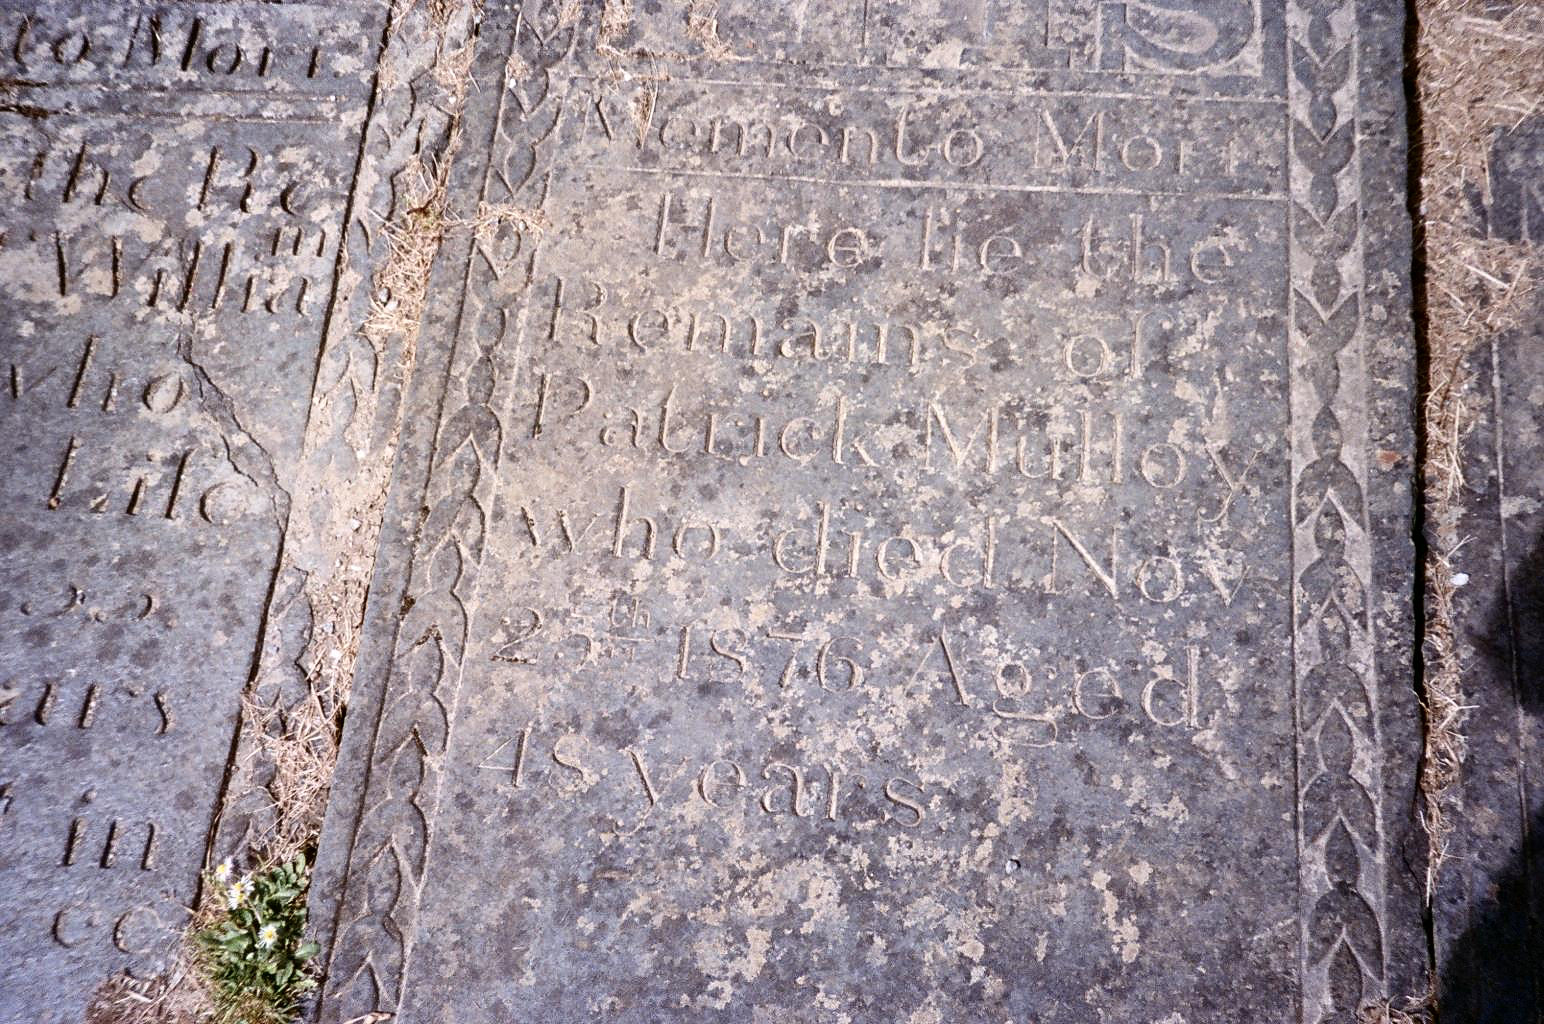 to Mori
the Re
William
who
in
Memento Mori
Here lie the
Remains of
Patrick Mulloy
who died Nov
25th 1876 Aged
48 years